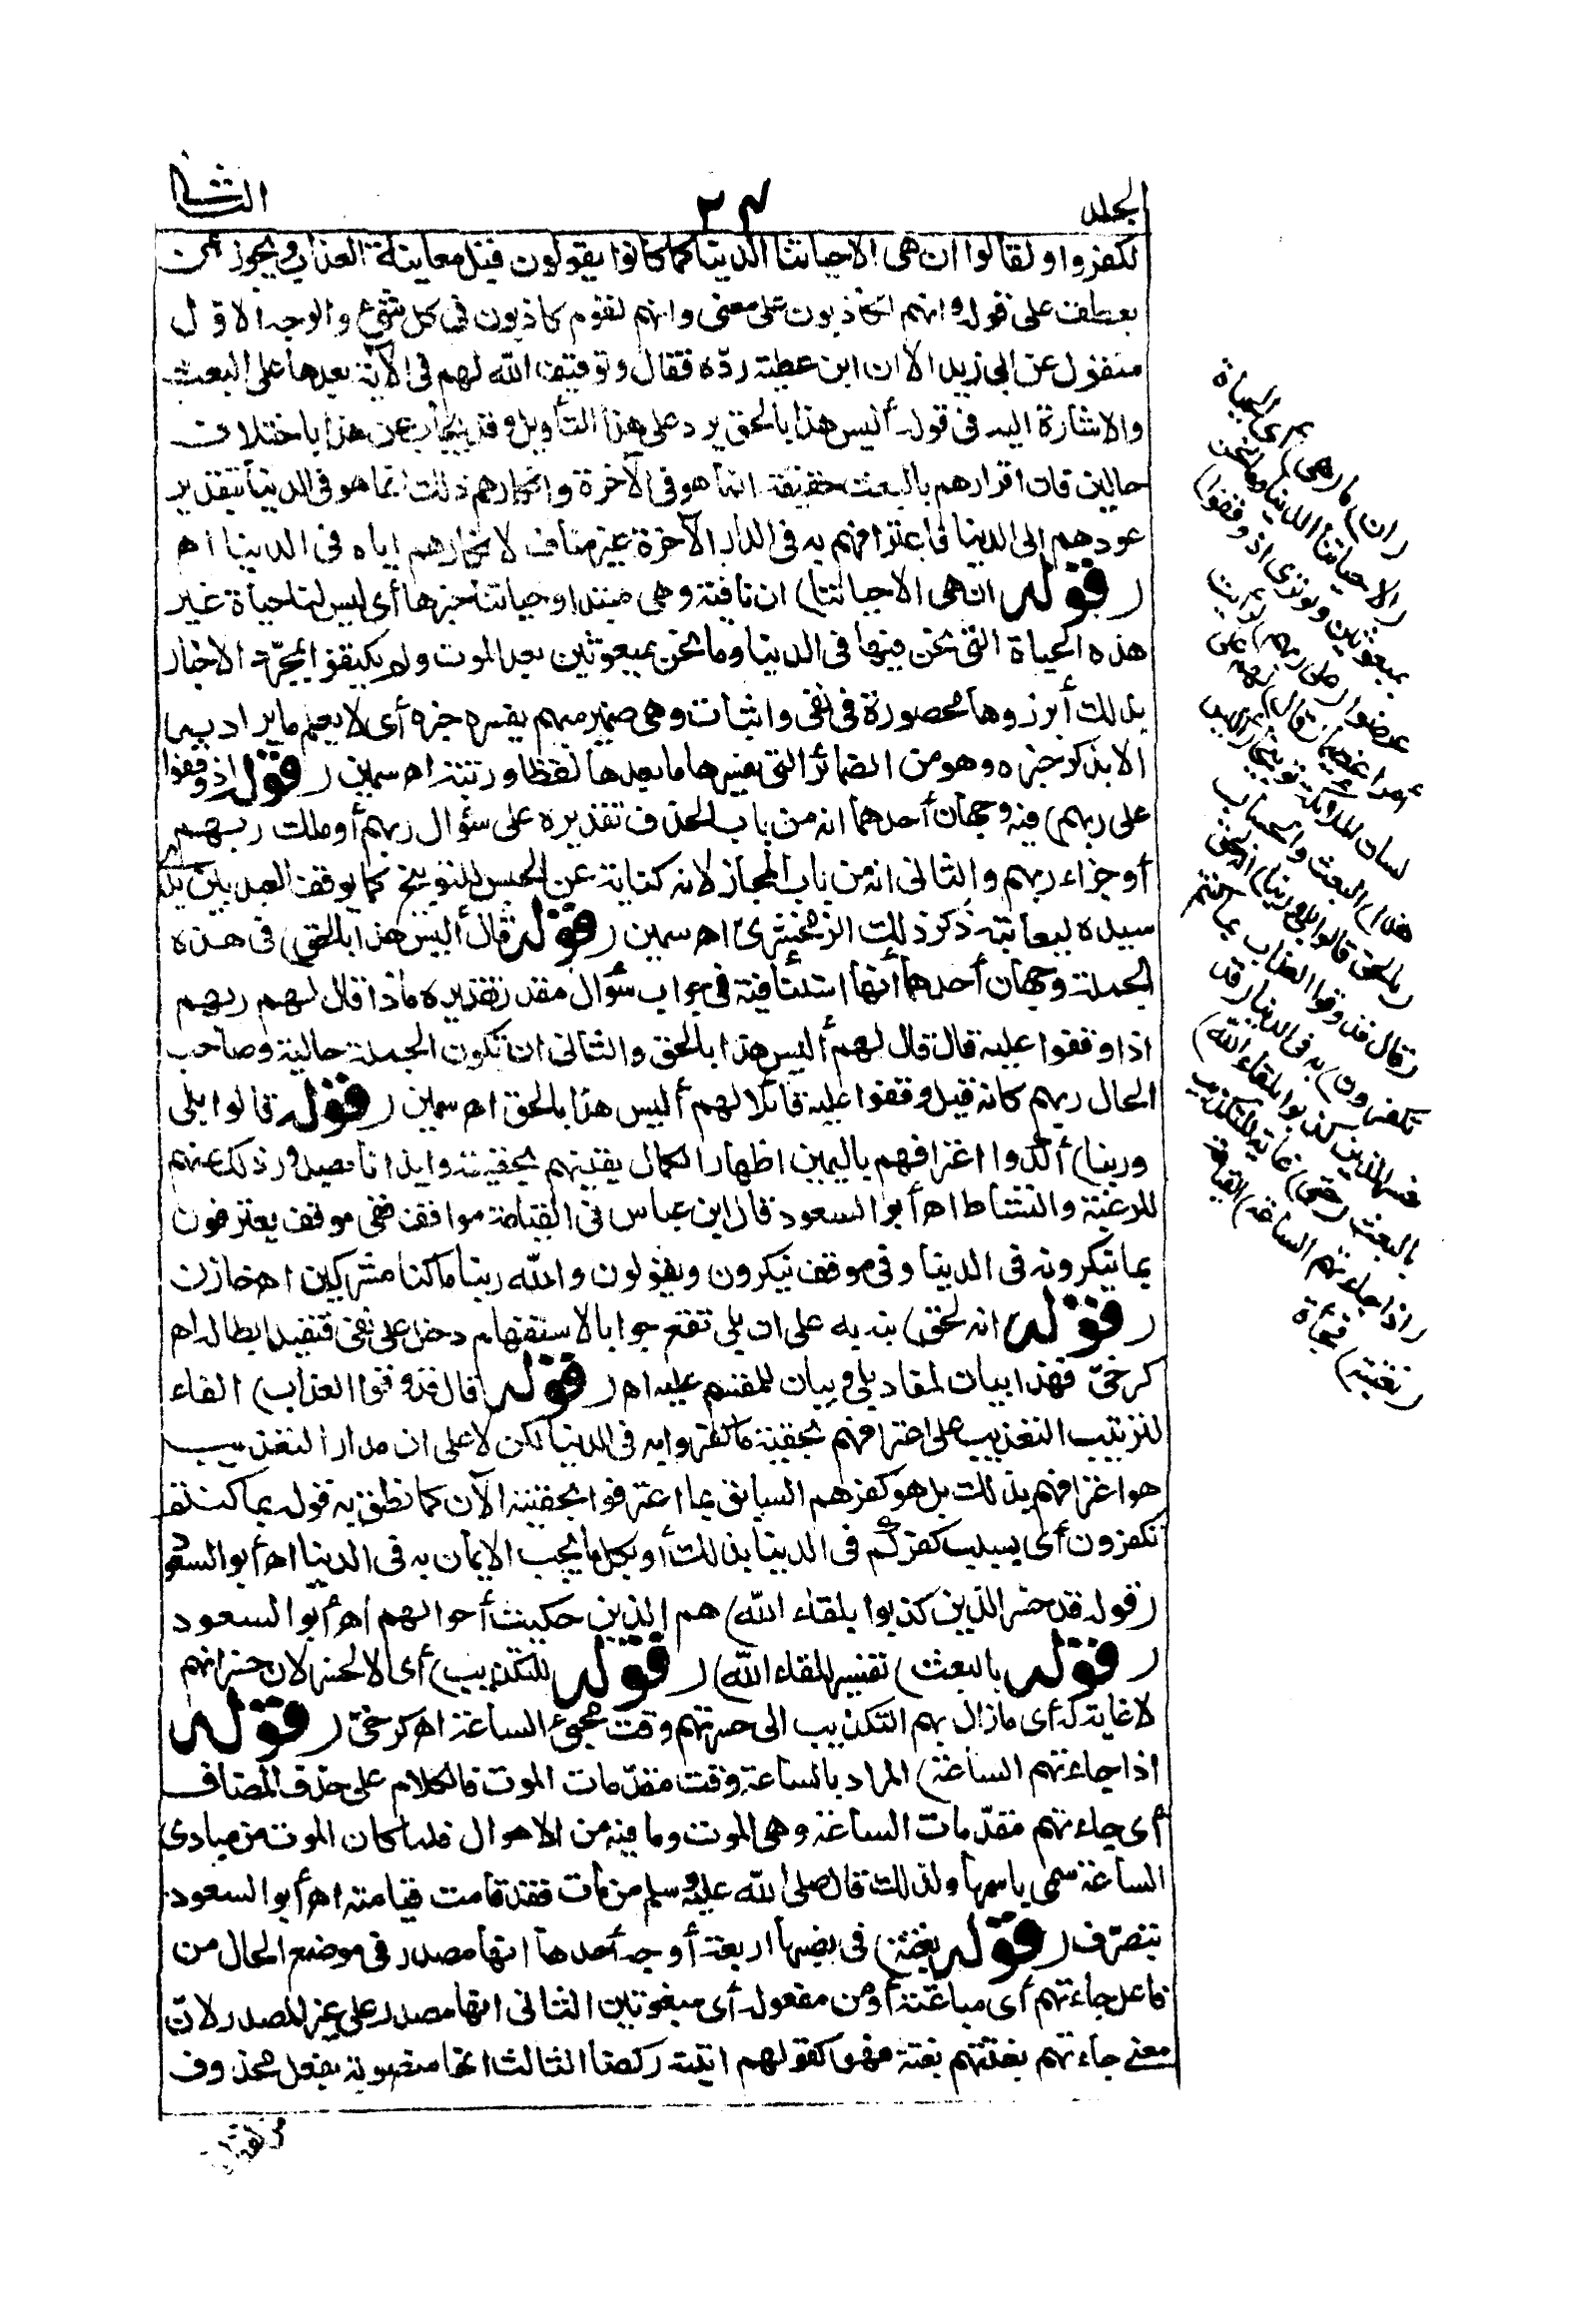 الجلد
٢٤
الثانى
لكفروا ولقالوا ان هى الاحياتنا الدنيا كما كانوا يقولون قبل معاينة العذاب ويجوز أن
يعطف على قوله وانهم لكاذبون على معنى وانهم لقوم كاذبون فى كل شئ والوجه الاول
منقول عن ابى زيد الا ان ابن عطية ردّه فقال وتوقيف الله لهم فى الآية بعدها على البعث
والاشارة اليه فى قوله أليس هذا بالحق يرد على هذا التأويل وقد يجاب عن هذا باختلاف
حالين فان اقرارهم بالبعث حقيقة انما هو فى الآخرة وانكارهم ذلك انما هو فى الدنيا بتقدير
عودهم الى الدنيا فاعترافهم به فى الدار الآخرة غير مناف لانكارهم اياه فى الدنيا اه
(قوله ان هى الاحياتنا) ان نافية وهى مبتدا وحياتنا خبرها أى ليس لنا حياة غير
هذه الحياة التى نحن فيها فى الدنيا وما نحن بمبعوثين بعد الموت ولم يكتفوا بمجرّد الاخبار
بذلك أبرزوها محصورة فى نفى واثبات وهى ضمير مبهم يفسره خبره أى لا يعلم ما يراد بها
الا بذكر خبره وهو من الضمائر التى يفسرها ما بعدها لفظا ورتبة اه سمين (قوله اذ وقفوا
على ربهم) فيه وجهان أحدهما انه من باب الحذف تقديره على سؤال ربهم أو ملك ربهم
أو جزاء ربهم والثانى انه من باب المجاز لانه كناية عن الحبس للتوبيخ كما يوقف العبد بين يدى
سيده ليعاتبه ذكر ذلك الزمخشرىّ اه سمين (قوله قال أليس هذا بالحق) فى هذه
الجملة وجهان أحدهما أنها استئنافية فى جواب سؤال مقدر تقديره ماذا قال لهم ربهم
اذا وقفوا عليه قال قال لهم أليس هذا بالحق والثانى ان تكون الجملة حالية وصاحب
الحال ربهم كانه قيل وقفوا عليه قائلا لهم أليس هذا بالحق اه سمين (قوله قالوا بلى
وربنا) أكدوا اعترافهم باليمين اظهارا لكمال يقينهم بحقيته وايذانا بصدور ذلك عنهم
للرغبة والنشاط اه أبو السعود قال ابن عباس فى القيامة مواقف ففى موقف يعترفون
بما ينكرونه فى الدنيا وفى موقف ينكرون ويقولون والله ربنا ما كنا مشركين اه خازن
(قوله انه لحق) نبه به على ان بلى تقع جوابا لاستفهام دخل على نفى فتفيد ابطاله اه
كرخىّ فهذا بيان لمفاد بلى وبيان للمقسم عليه اه (قوله قال فذوقوا العذاب) الفاء
لترتيب التعذيب على اعترافهم بحقية ما كفروا به فى الدنيا لكن لا على ان مدار التعذيب
هو اعترافهم بذلك بل هو كفرهم السابق بما اعترفوا بحقيته الآن كما نطق به قوله بما كنتم
تكفرون أى بسبب كفركم فى الدنيا بذلك أو بكل ما يجب الايمان به فى الدنيا اه أبو السعود
(قوله قد خسر الذين كذبوا بلقاء الله) هم الذين حكيت أحوالهم اه أبو السعود
(قوله بالبعث) تفسير للقاء الله (قوله للتكذيب) أى لا لخسر لان خسرانهم
لا غاية له أى ما زال بهم التكذيب الى حسرتهم وقت مجئ الساعة اه كرخىّ (قوله
اذا جاءتهم الساعة) المراد بالساعة وقت مقدّمات الموت فالكلام على حذف المضاف
أى جاءتهم مقدّمات الساعة وهى الموت وما فيه من الاهوال فلما كان الموت من مبادى
الساعة سمى باسمها ولذلك قال صلى الله عليه وسلم من مات فقد قامت قيامته اه أبو السعود
بتصرّف (قوله بغتة) فى نصبها اربعة أوجه أحدها انها مصدر فى موضع الحال من
فاعل جاءتهم أى مباغتة أو من مفعوله أى مبغوتين الثانى انها مصدر على غير المصدر لانّ
معنى جاءتهم بغتتهم بغتة فهو كقولهم اتيته ركضا الثالث انها منصوبة بفعل محذوف
(ان) ما (هى) أى الحياة
(الا حياتنا الدنيا وما نحن
بمبعوثين ولو ترى اذ وقفوا)
عرضوا (على ربهم) لرأيت
أمرا عظيما (قال) لهم على
لسان الملائكة توبيخا (أليس
هذا) البعث والحساب
(بالحق قالوا بلى وربنا) انه لحق
(قال فذوقوا العذاب بما كنتم
تكفرون) به فى الدنيا (قد
خسر الذين كذبوا بلقاء الله)
بالبعث (حتى) غاية للتكذيب
(اذا جاءتهم الساعة) القيامة
(بغتة) فجأة